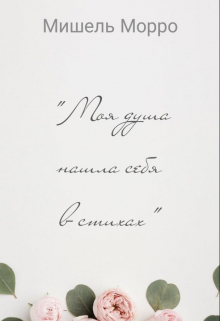 Мишель Морро
"Моя душа
нашла себя
в стихах"